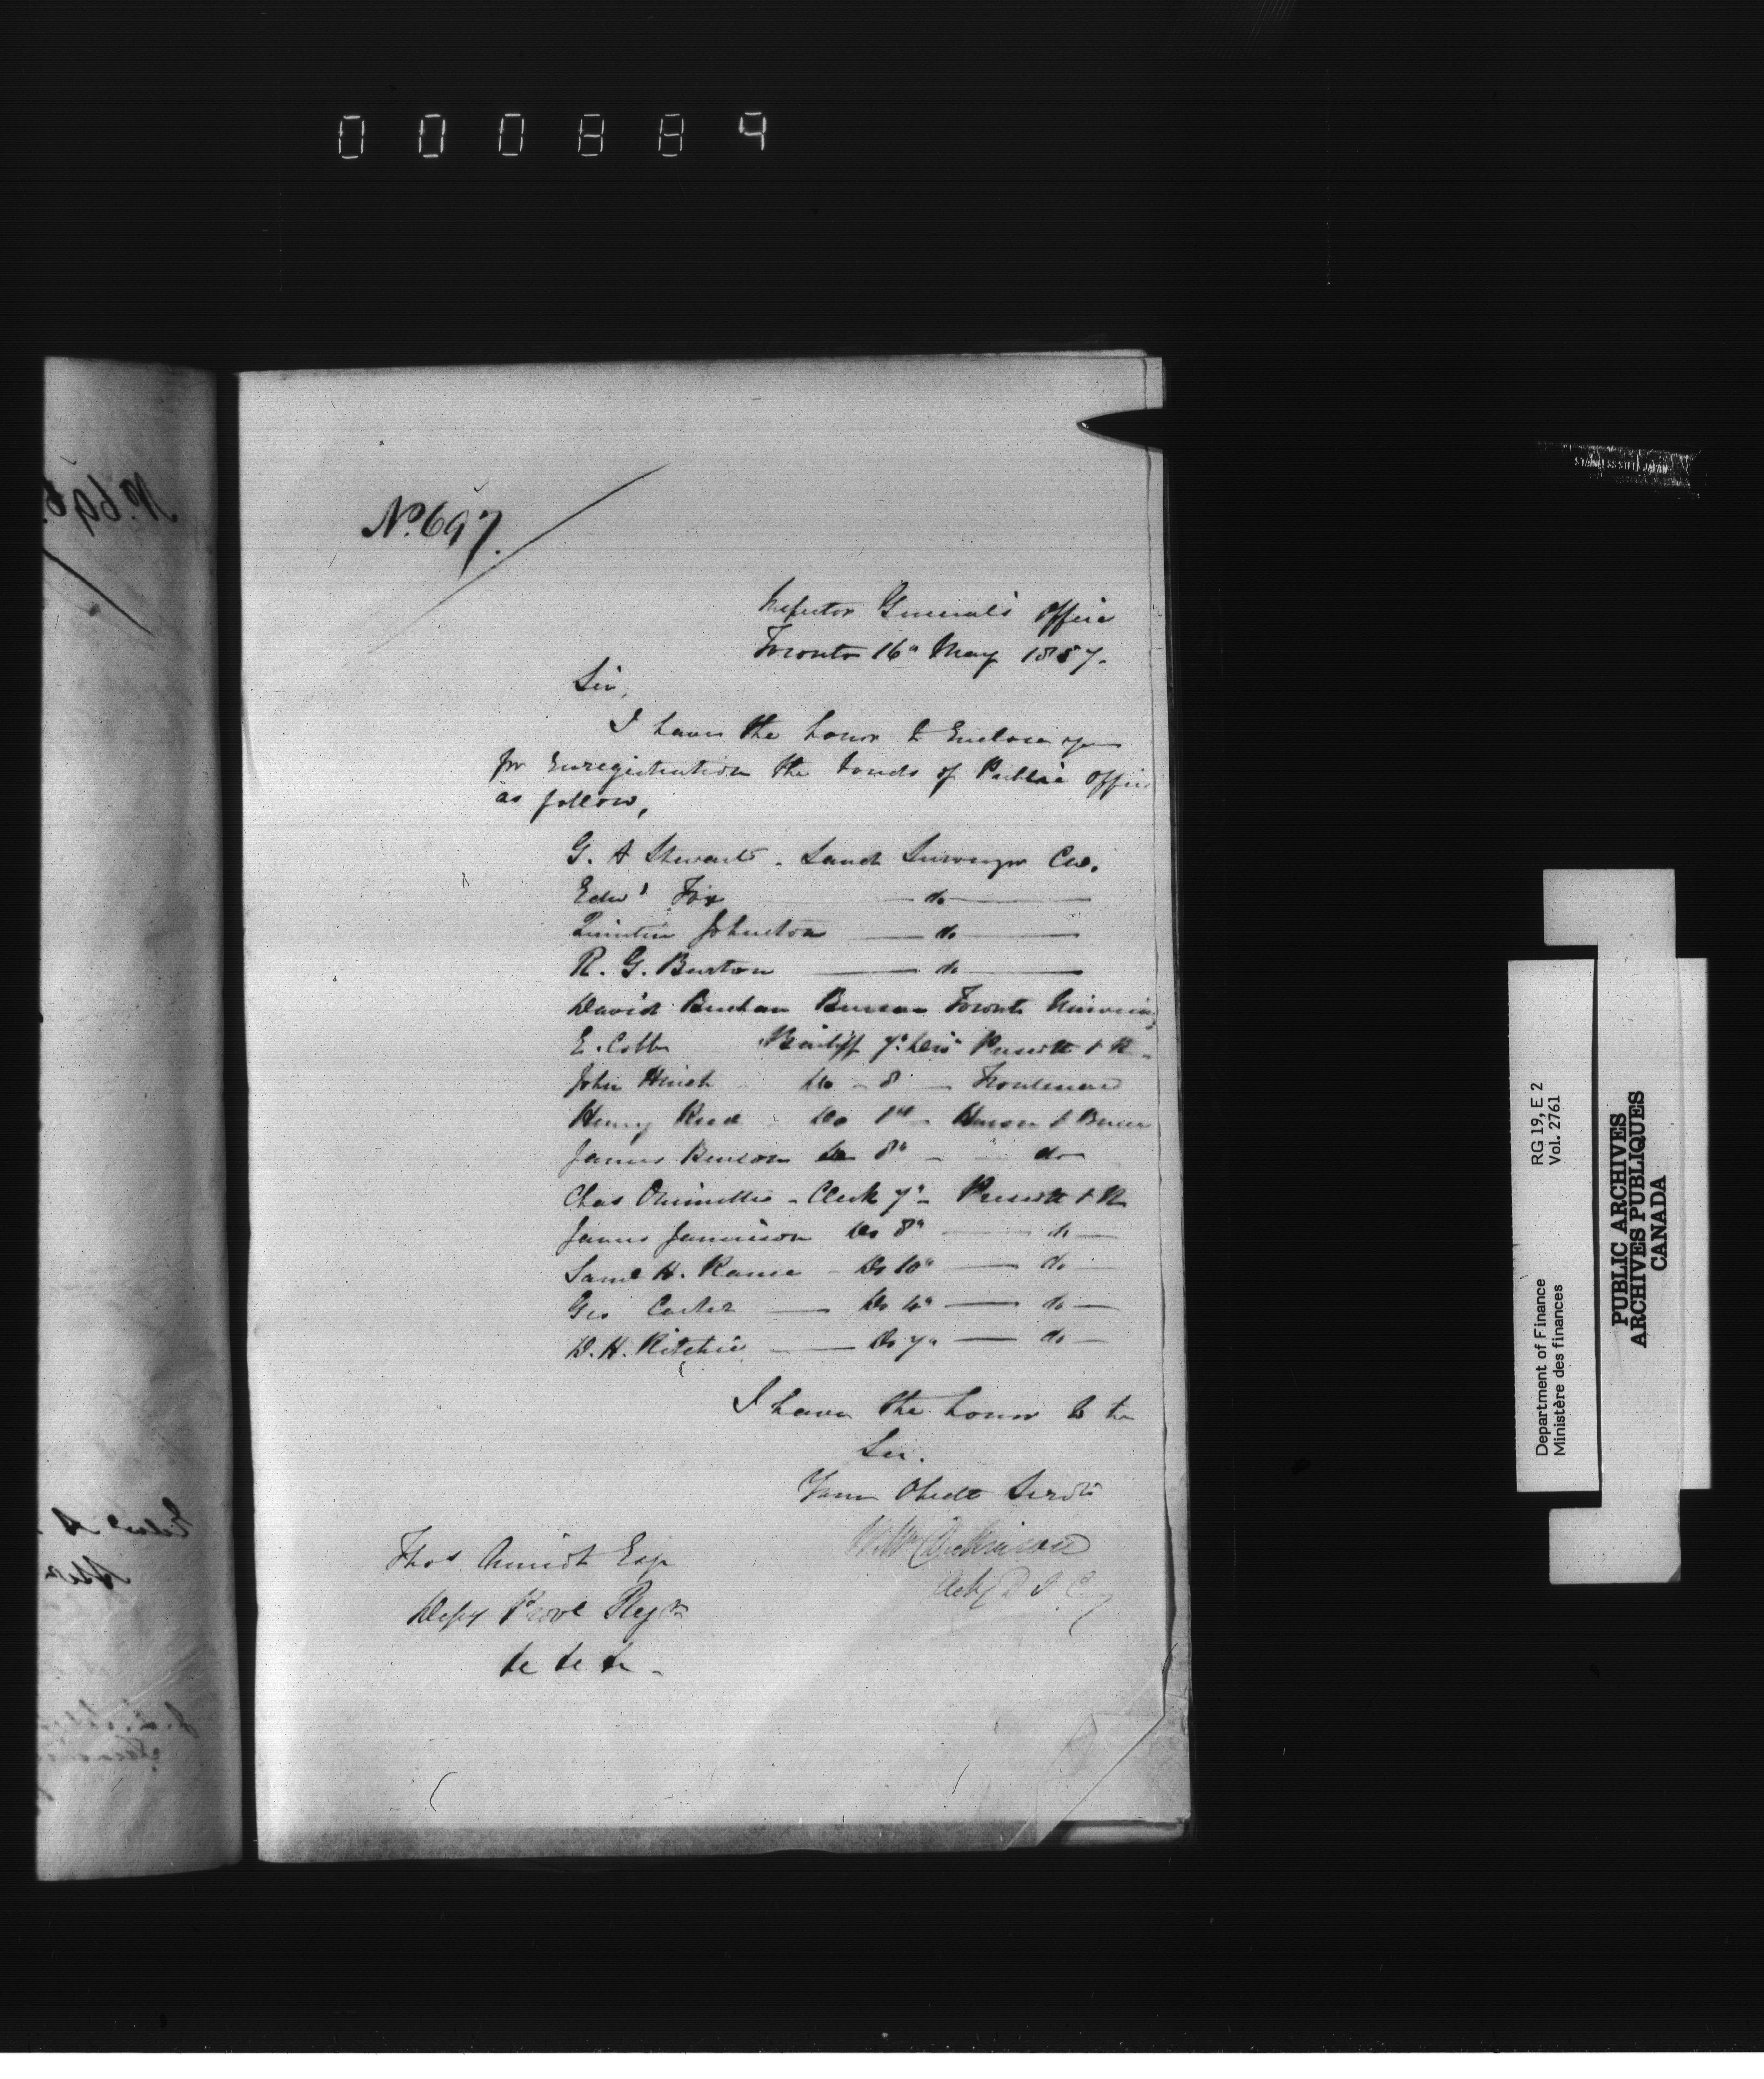 000884
No. 697.
Inspector General's Office
Toronto 16th May 1857.
Sir,
I have the honor to Enclose you
for Enregistration the bonds of Public Office
as follow,
G. A Stewart - Land Surveyor CW.
Edwd Fox — do —
Quintin Johnston — do —
R. G. Burton — do —
David Buchan Bursar Toronto University
E. Cobb Bailiff 7th Divn Prescott & R -
John - Do - 8 - Frontenac
Henry Reed - Do 1st - Huron & Bruce
James Benson Do 8th - do
Chas Ouimette - Clerk 7th - Prescott & R
James Jamieson Do 8th — do —
Saml H. - Do 10th — do —
Geo Carter — Do 4th — do —
D. H. Ritchie — Do 7th — do —
I have the honor to be
Sir.
Your Obedt Servt
Wm Dickinson
Actg D I G
Thos Amiot Esqr
Depy Provl Regr
&c &c &c -
No. 696.
STAINLESS STEEL JAPAN
Department of Finance RG 19, E 2
Ministère des finances Vol. 2761
PUBLIC ARCHIVES
ARCHIVES PUBLIQUES
CANADA